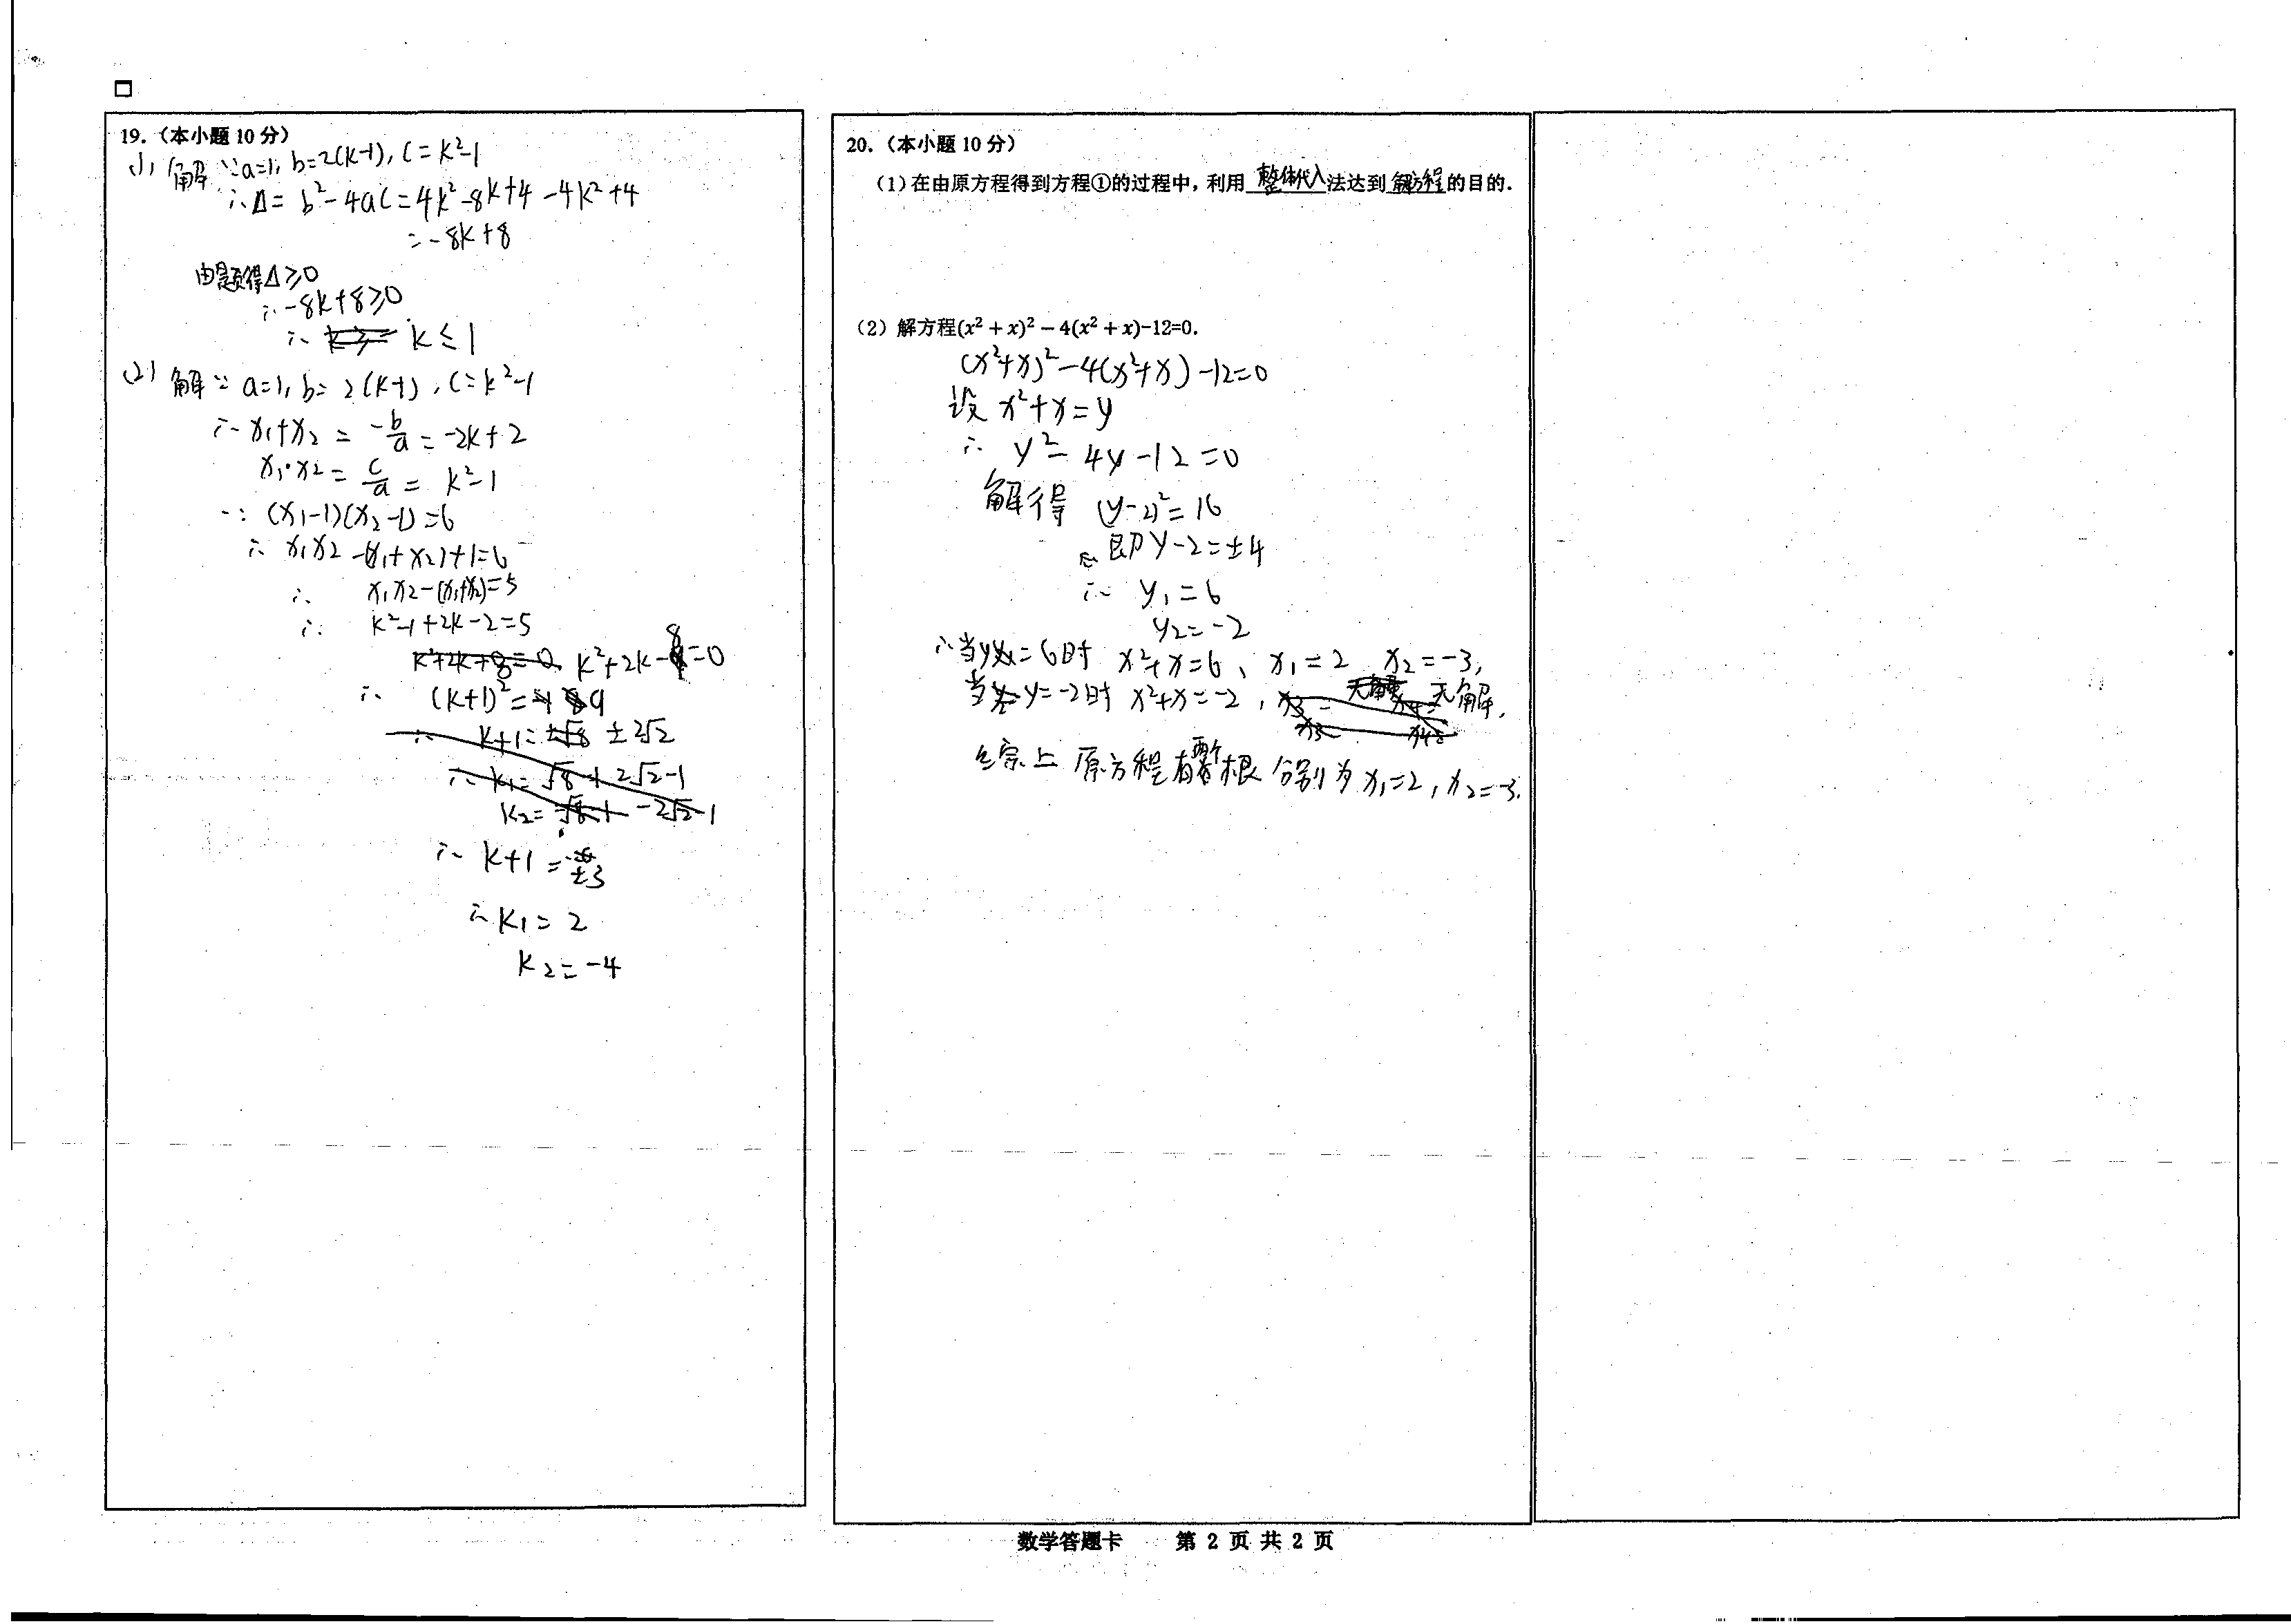 19.（本小题 10 分）
(1) 解 ∵a=1, b=2(k-1), c=k²-1
∴Δ= b²-4ac=4k²-8k+4-4k²+4
=-8k+8
由题得Δ≥0
∴-8k+8≥0
∴ k≤1
(2) 解 ∵ a=1, b=2(k-1), c=k²-1
∴ x₁+x₂ = -b/a = -2k+2
x₁·x₂ = c/a = k²-1
∵ (x₁-1)(x₂-1)=6
∴ x₁x₂-(x₁+x₂)+1=6
∴ x₁x₂-(x₁+x₂)=5
∴ k²-1+2k-2=5
k²+2k+8=0 k²+2k-8=0
∴ (k+1)²=9
∴ k+1=±√8 ±2√2
∴ k₁=√8+ 2√2-1
k₂=-√8-1 -2√2-1
∴ k+1=±3
∴ k₁=2
k₂=-4
20.（本小题 10 分）
（1）在由原方程得到方程①的过程中，利用 整体代入 法达到 解方程 的目的．
（2）解方程(x² + x)² − 4(x² + x)-12=0.
(x²+x)²-4(x²+x)-12=0
设 x²+x=y
∴ y²-4y-12=0
解得 (y-2)²=16
即y-2=±4
∴ y₁=6
y₂=-2
∴当y=6时 x²+x=6、x₁=2 x₂=-3,
当y=-2时 x²+x=-2, 无解.
综上 原方程有两个根 分别为 x₁=2, x₂=-3.
数学答题卡 第 2 页 共 2 页